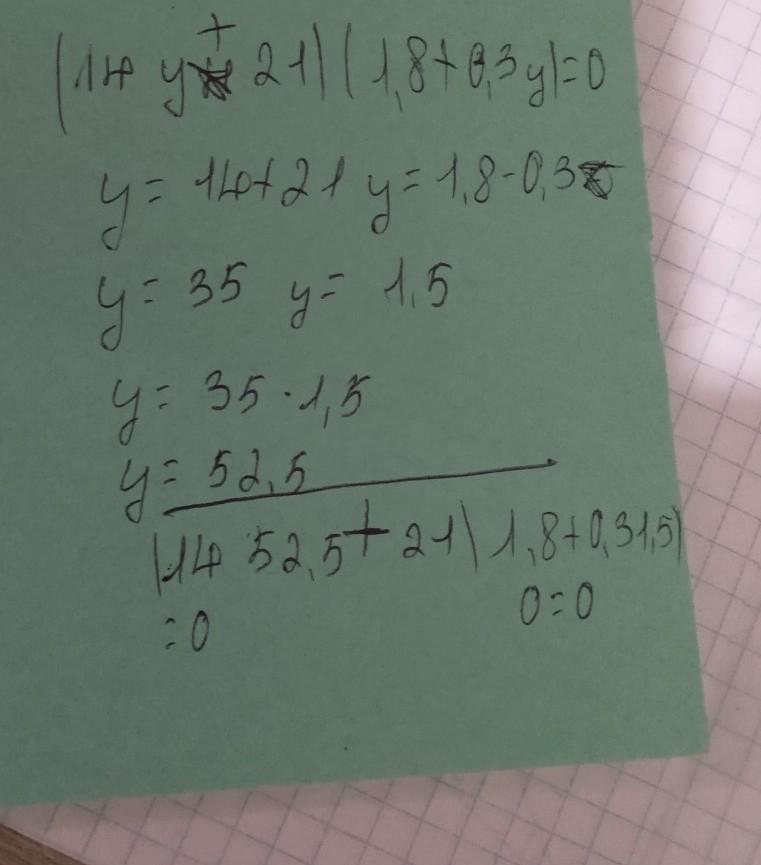 (14 y + 21) (1,8 + 0,3y) = 0
y = 14 + 21 y = 1,8 - 0,3
y = 35 y = 1,5
y = 35 · 1,5
y = 52,5
(14 52,5 + 21) 1,8 + 0,31,5)
= 0 0 = 0